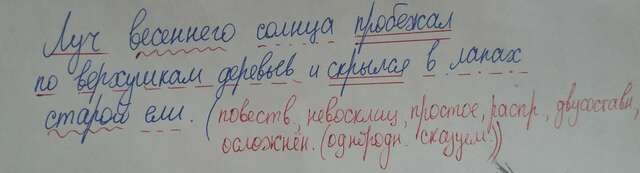 Луч весеннего солнца пробежал
по верхушкам деревьев и скрылся в лапах
старой ели. (повеств, невосклиц, простое, распр., двусоставн,
осложнён. (однородн. сказуем.))